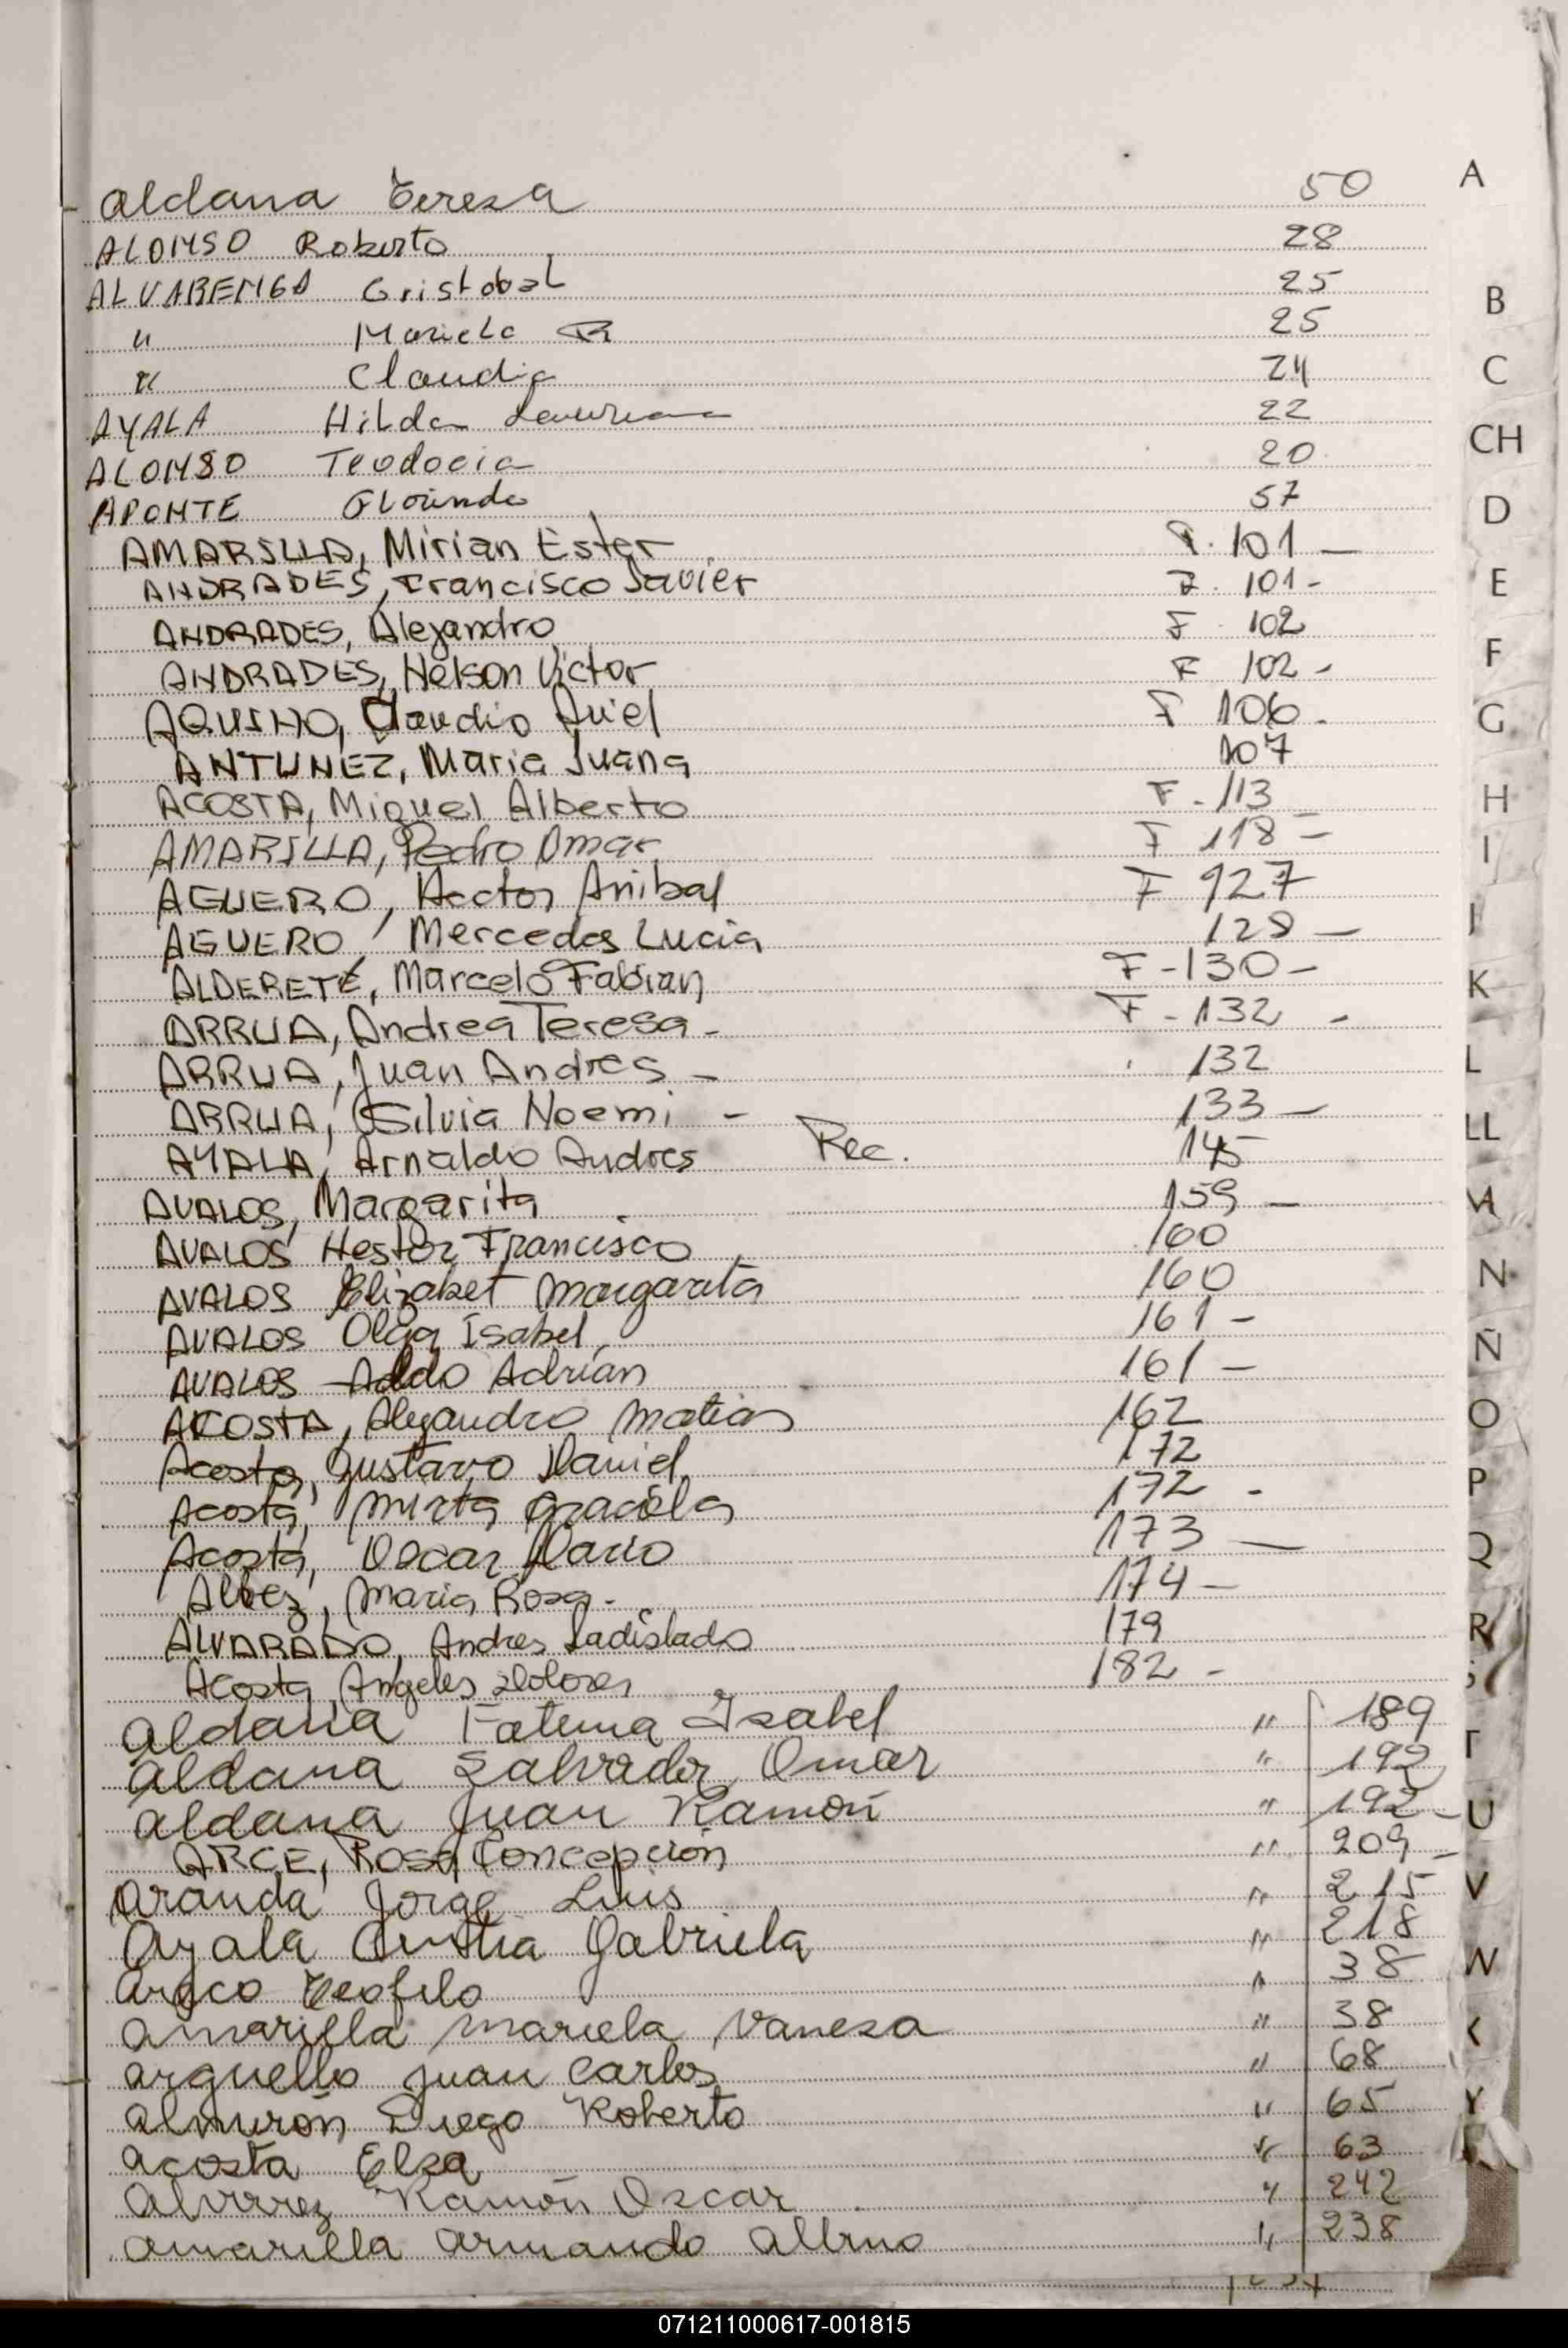 A
Aldana Teresa 50
ALONSO Roberto 28
ALVARENGA Cristobal 25
B
" Mariela R 25
" Claudia 24
C
AYALA Hilda 22
CH
ALONSO Teodocia 20
APONTE Florinda 57
D
AMARILLA, Mirian Ester F. 101 —
ANDRADES, Francisco Javier F. 101 -
E
ANDRADES, Alejandro F 102
ANDRADES, Nelson Victor F 102 -
F
AQUINO, Claudio Ariel F 106 -
G
ANTUNEZ, Maria Juana 107
ACOSTA, Miguel Alberto F - 113
H
AMARILLA, Pedro Omar F 118 -
I
AGUERO, Hector Anibal F 127
AGUERO, Mercedes Lucia 128 —
J
ALDERETE, Marcelo Fabian F - 130 -
K
ARRUA, Andrea Teresa - F - 132 -
ARRUA, Juan Andres - 132
L
ARRUA, Silvia Noemi - 133 —
LL
AYALA, Arnaldo Andres Rec. 145
AVALOS, Margarita 159 —
M
AVALOS Hestor Francisco 160
AVALOS Elizabet Margarita 160
N
AVALOS Olga Isabel 161 -
Ñ
AVALOS Aldo Adrián 161 -
ACOSTA, Alejandro Matias 162
O
Acosta, Gustavo Daniel 172
Acosta, Mirta Graciela 172 -
P
Acosta, Oscar Dario 173 —
Q
Albez, Maria Rosa - 174 -
ALVARADO, Andres Ladislado 179
R
Acosta, Angeles Dolores 182 -
S
Aldana Fatima Isabel " 189
T
Aldana Salvador Omar " 192
Aldana Juan Ramón " 192 -
U
ARCE, Rosa Concepción " 209 -
Aranda Jorge Luis " 215
V
Ayala Cintia Gabriela " 218
Areco Teofilo " 38
W
Amarilla Mariela Vanesa " 38
X
Arguello Juan Carlos " 68
Almirón Diego Roberto " 65
Y
Acosta Elsa " 63
Alvirez Ramón Oscar " 242
Amarilla Armando Albino " 238
071211000617-001815